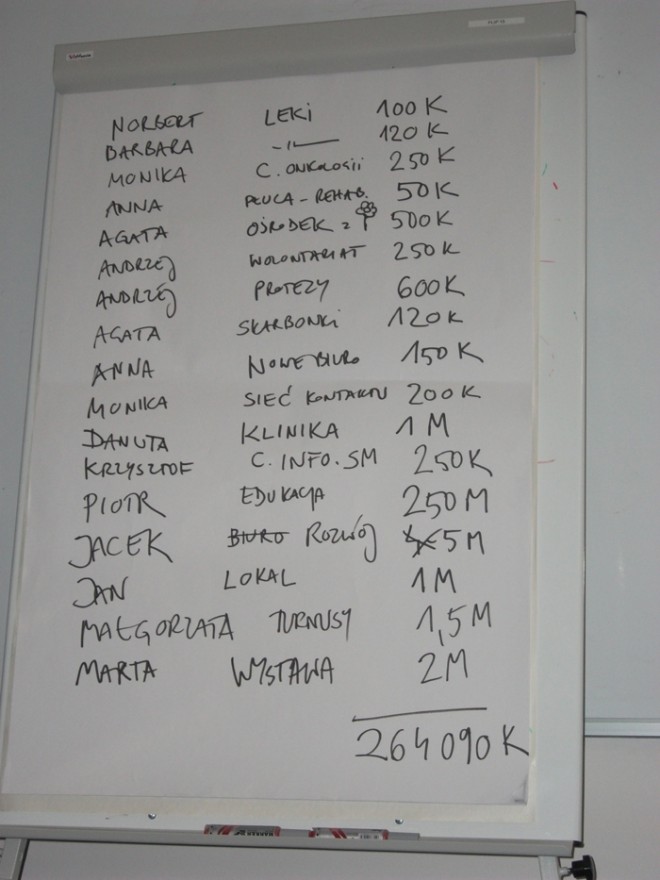 NORBERT LEKI 100 K
BARBARA -||- 120 K
MONIKA C. ONKOLOGII 250 K
ANNA PŁUCA - REHAB. 50 K
AGATA OŚRODEK Z 500 K
ANDRZEJ WOLONTARIAT 250 K
ANDRZEJ PROTEZY 600 K
AGATA SKARBONKI 120 K
ANNA NOWE BIURO 150 K
MONIKA SIEĆ KONTAKTU 200 K
DANUTA KLINIKA 1 M
KRZYSZTOF C. INFO. SM 250 K
PIOTR EDUKACJA 250 M
JACEK BIURO ROZWÓJ 5 M
JAN LOKAL 1 M
MAŁGORZATA TURNUSY 1,5 M
MARTA WYSTAWA 2 M
264 090 K